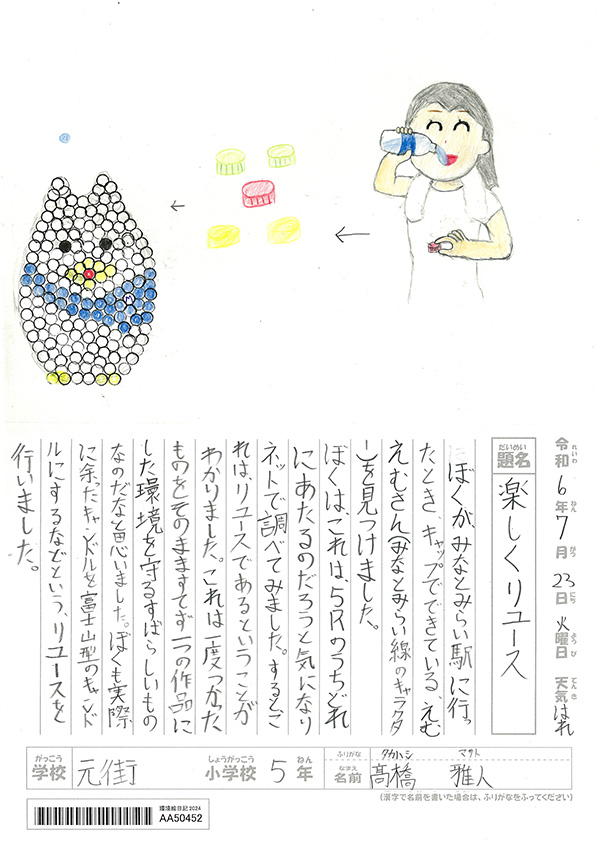 令和6年7月23日火曜日 天気はれ
れいわ ねん がつ にち ようび てんき
だいめい
題名 楽しくリユース
ぼくが、みなとみらい駅に行っ
たとき、キャップでできている、えむ
えむさん(みなとみらい線のキャラクタ
ー)を見つけました。
ぼくは、これは、5Rのうちどれ
にあたるのだろうと気になり
ネットで調べてみました。するとこ
れは、リユースであるということが
わかりました。これは一度つかった
ものをそのまますてず一つの作品に
した環境を守るすばらしいもの
なのだなと思いました。ぼくも実際
に余ったキャンドルを富士山型のキャンド
ルにするなどという、リユースを
行いました。
がっこう しょうがっこう ねん
学校 元街 小学校 5年
ふりがな タカハシ マサト
なまえ
名前 高橋 雅人
(漢字で名前を書いた場合は、ふりがなをふってください)
環境絵日記2024
AA50452